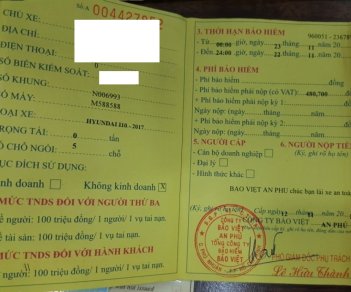 CHỦ XE:
Số: A 0044279
ĐỊA CHỈ:
ĐIỆN THOẠI:
SỐ BIỂN KIỂM SOÁT: 0
SỐ KHUNG
N006993
SỐ MÁY:
M588588
LOẠI XE:
HYUNDAI I10 - 2017
TRỌNG TẢI: 0 tấn
SỐ CHỖ NGỒI: 5 chỗ
MỤC ĐÍCH SỬ DỤNG:
Kinh doanh Không kinh doanh X
MỨC TNDS ĐỐI VỚI NGƯỜI THỨ BA
Về người: 100 triệu đồng/ 1 người/ 1 vụ tai nạn.
Về tài sản: 100 triệu đồng/ 1 vụ tai nạn.
MỨC TNDS ĐỐI VỚI HÀNH KHÁCH
người: 100 triệu đồng/ 1 người/ 1 vụ tai nạn
3. THỜI HẠN BẢO HIỂM
960051 - 2367
- Từ 00:00 giờ, ngày 23 tháng 11 năm 20
- Đến 24:00 giờ, ngày 22 tháng 11 năm 20
4. PHÍ BẢO HIỂM
- Phí bảo hiểm: đồng
- Phí bảo hiểm phải nộp (có VAT): 480,700
- Phí bảo hiểm phải nộp kỳ 1:
Ngày nộp: (ngày/ tháng/ năm)
- Phí bảo hiểm phải nộp kỳ 2:
Ngày nộp: (ngày/ tháng/ năm)
5. NGƯỜI CẤP
6. NGƯỜI NỘP TIỀ
- Cán bộ doanh nghiệp
(Ký, ghi rõ họ tên)
- Đại lý
- Hình thức khác
BẢO VIỆT AN PHÚ chúc bạn lái xe an toà
Cấp ngày 12 tháng 11 năm
BẢO VIỆT AN PHÚ
(Ký, ghi rõ họ
CÔNG TY
BẢO VIỆT
AN PHÚ
TỔNG CÔNG TY
BẢO HIỂM
BẢO VIỆT
PHÓ GIÁM ĐỐC PHỤ TRÁCH
Lê Hữu Thành